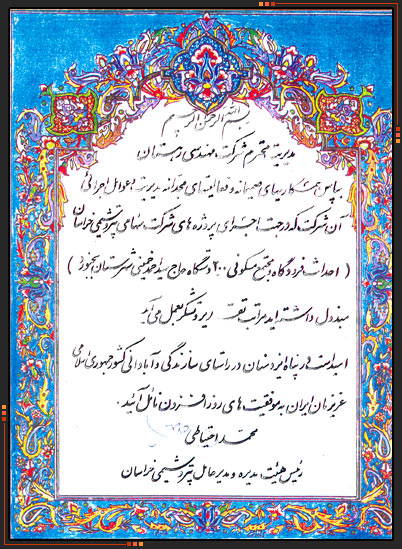 بسم الله الرحمن الرحیم
مدیریت محترم شرکت مهندسی
بپاس همکاریهای صمیمانه و فعالیتهای مجدانه مدیریت و عوامل اجرائی
آن شرکت که در جهت اجرای پروژه های شرکت سهامی پتروشیمی خراسان
( احداث فرودگاه و مجتمع مسکونی ۲۰۰ دستگاه حاج سید احمد خمینی شهرستان بجنورد )
مبذول داشته اید مراتب تقدیر و تشکر بعمل می آید
امید است در پناه ایزد منان در راستای سازندگی و آبادانی کشور جمهوری اسلامی
عزیزمان ایران به موفقیت های روزافزون نائل آئید .
محمد احتیاطی
رئیس هیئت مدیره و مدیرعامل پتروشیمی خراسان